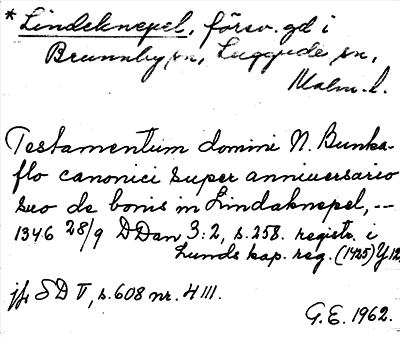 *Lindeknepel, försv. gd i
Brunnby sn, Luggude
Malm. l.
Testamentum domini N. Bunka-
flo canonici super anniversario
suo de bonis in Lindaknepel, --
1346 28/9 DDan 3:2, s. 258. registr. i
Lunds kap. reg. (1425) Y 12
jfr SD V, s. 608 nr. 4111.
G.E. 1962.